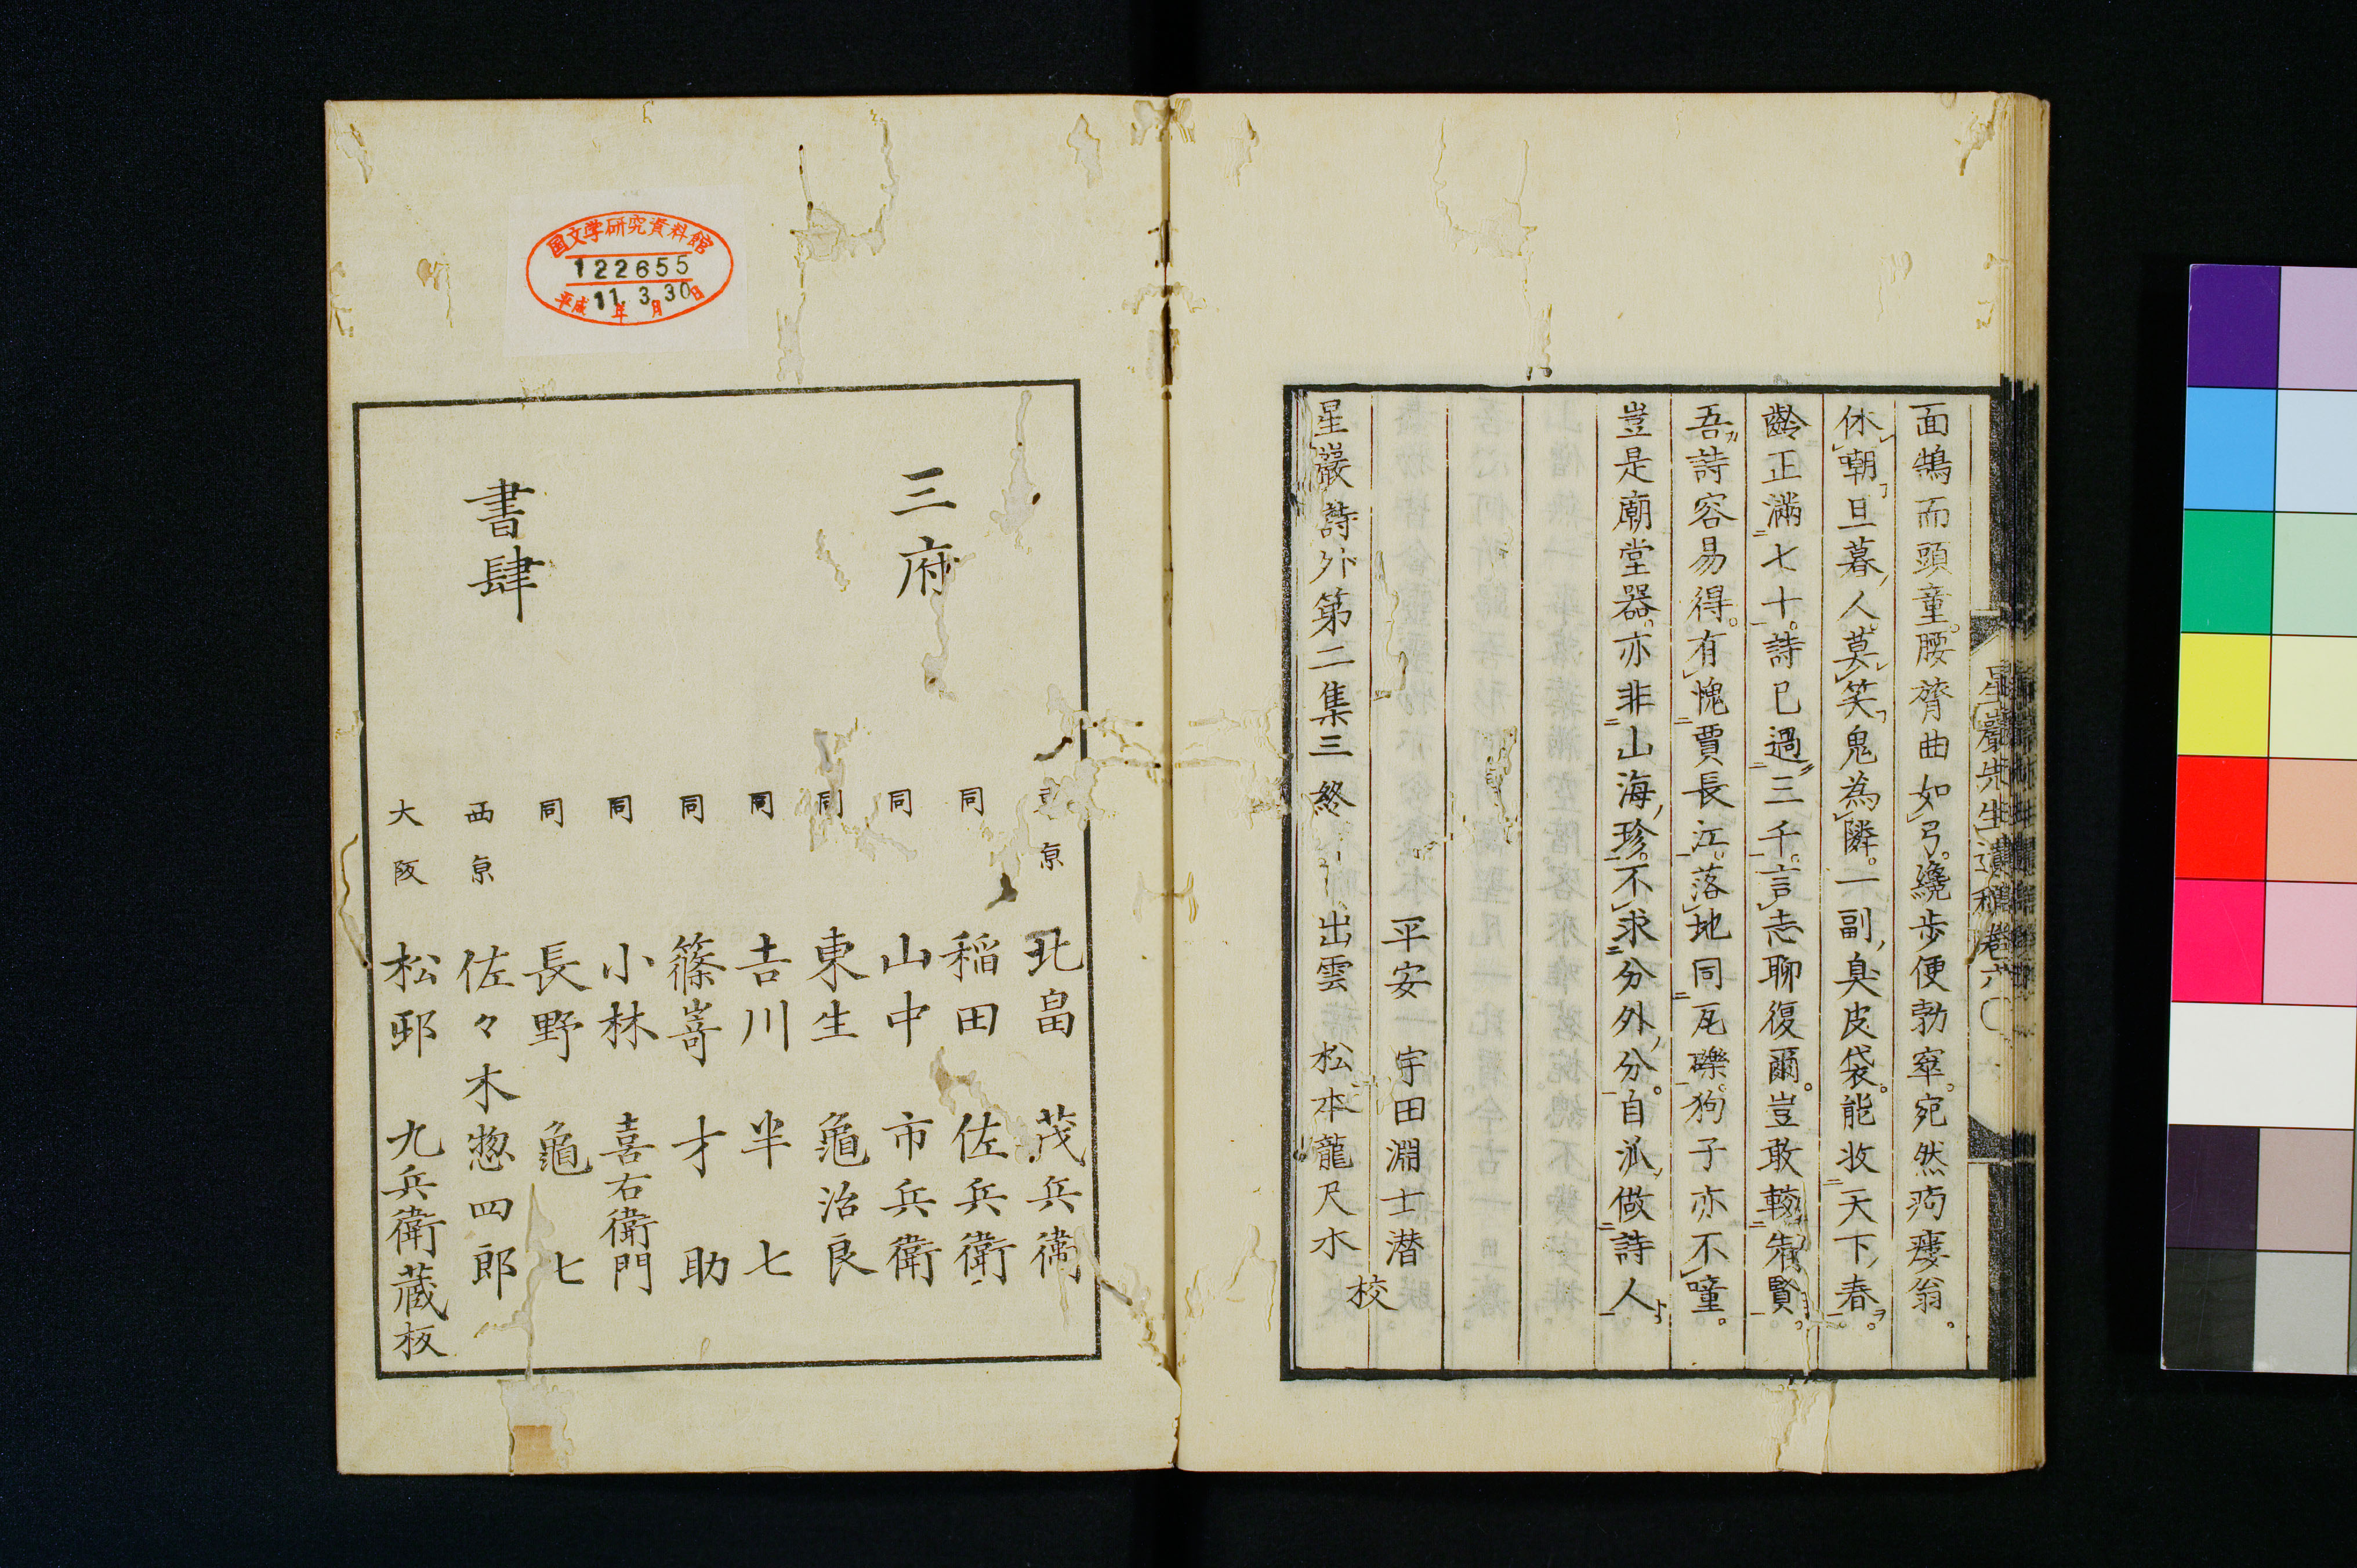 面鵠而頭童。腰膂曲如弓。繞步便勃窣。宛然痀瘻翁。
休嘲旦暮人。莫笑鬼為隣。一副臭皮袋。能收天下春。
齡正滿七十。詩已過三千。言志聊復爾。豈敢較先賢。
吾詩容易得。有愧賈長江。落地同瓦礫。狗子亦不噇。
豈是廟堂器。亦非山海珍。不求分外分。自派做詩人。
平安 宇田淵士潜
星巖詩外第二集三終 出雲 松本龍尺水
校
星巖先生遺稿 卷六
三府
書肆
京 北畠 茂兵衛
同 稲田 佐兵衛
同 山中 市兵衛
同 東生 龜治良
同 吉川 半七
同 篠嵜 才助
同 小林 喜右衛門
同 長野 龜七
西京 佐々木惣四郎
大阪 松邨 九兵衛蔵板
国文学研究資料館
122655
平成11年3月30日